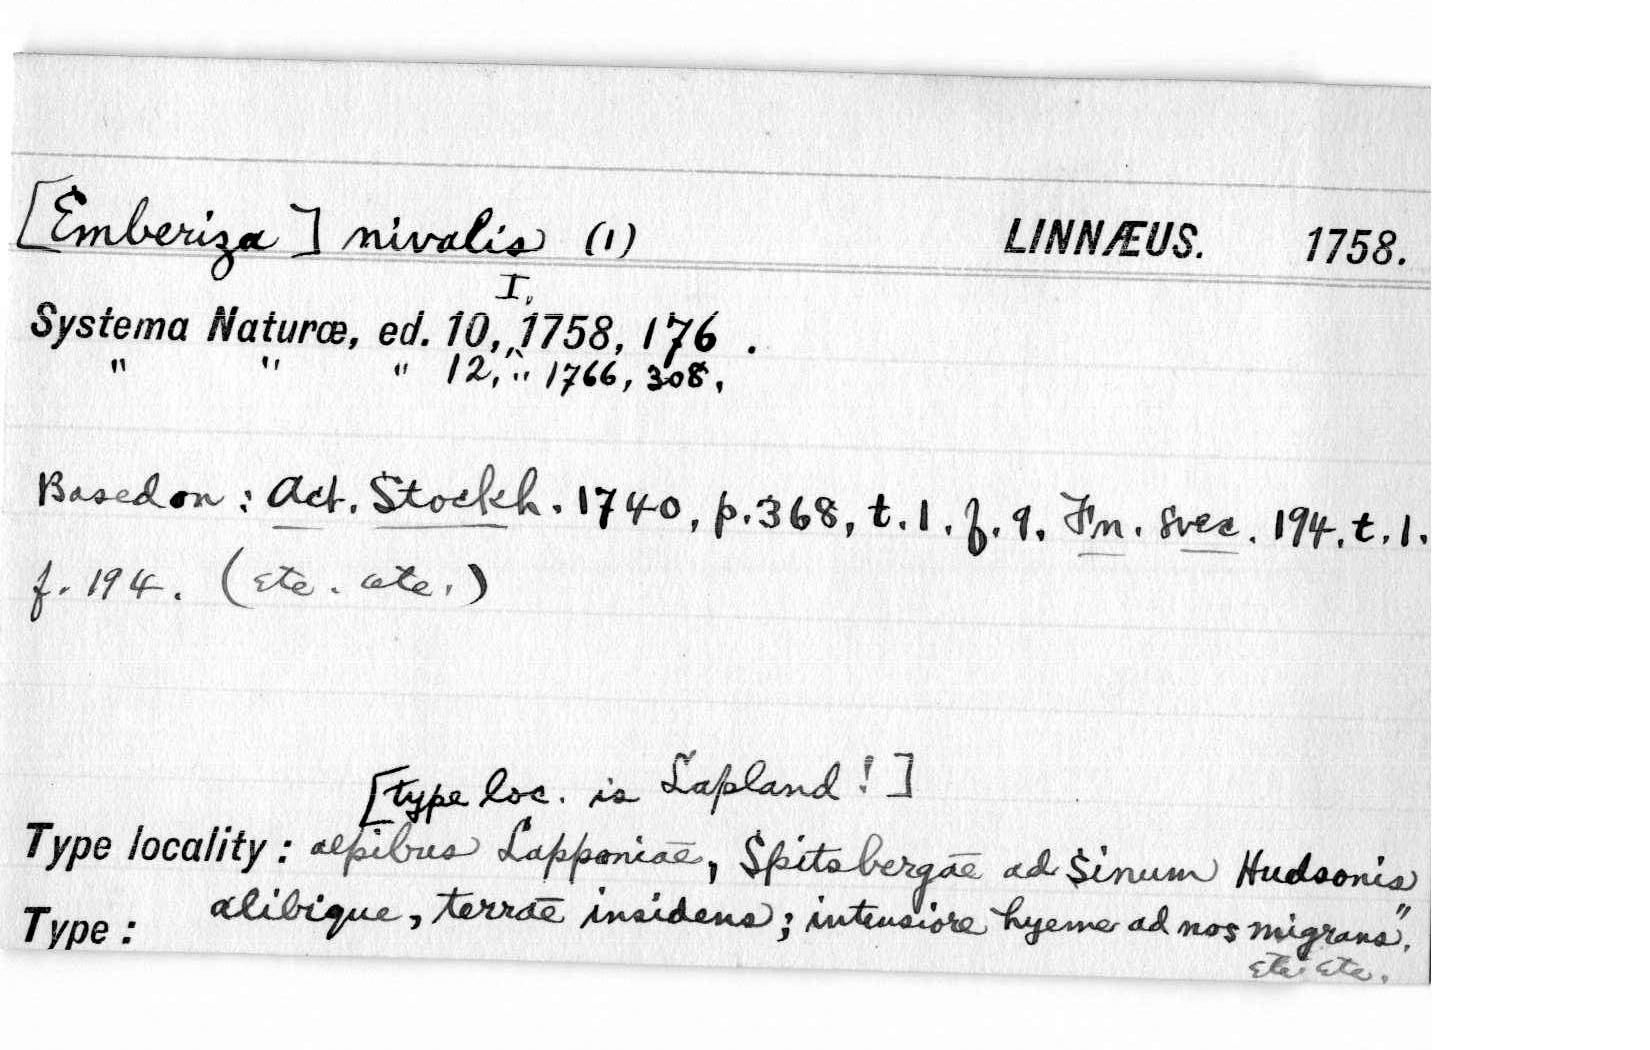 [Emberiza] nivalis (1) LINNÆUS. 1758.
I,
Systema Naturæ, ed. 10, ^ 1758, 176 .
" " " 12, " 1766, 308,
Based on : Act. Stockh. 1740, p. 368, t. 1. f. 9. Fn. svec. 194. t. 1.
f. 194. (etc. etc.)
[type loc. is Lapland ! ]
Type locality : alpibus Lapponiae, Spitsbergae ad Sinum Hudsonis
alibique, terrae insidens ; intensiore hyeme ad nos migrans".
Type :
etc etc.